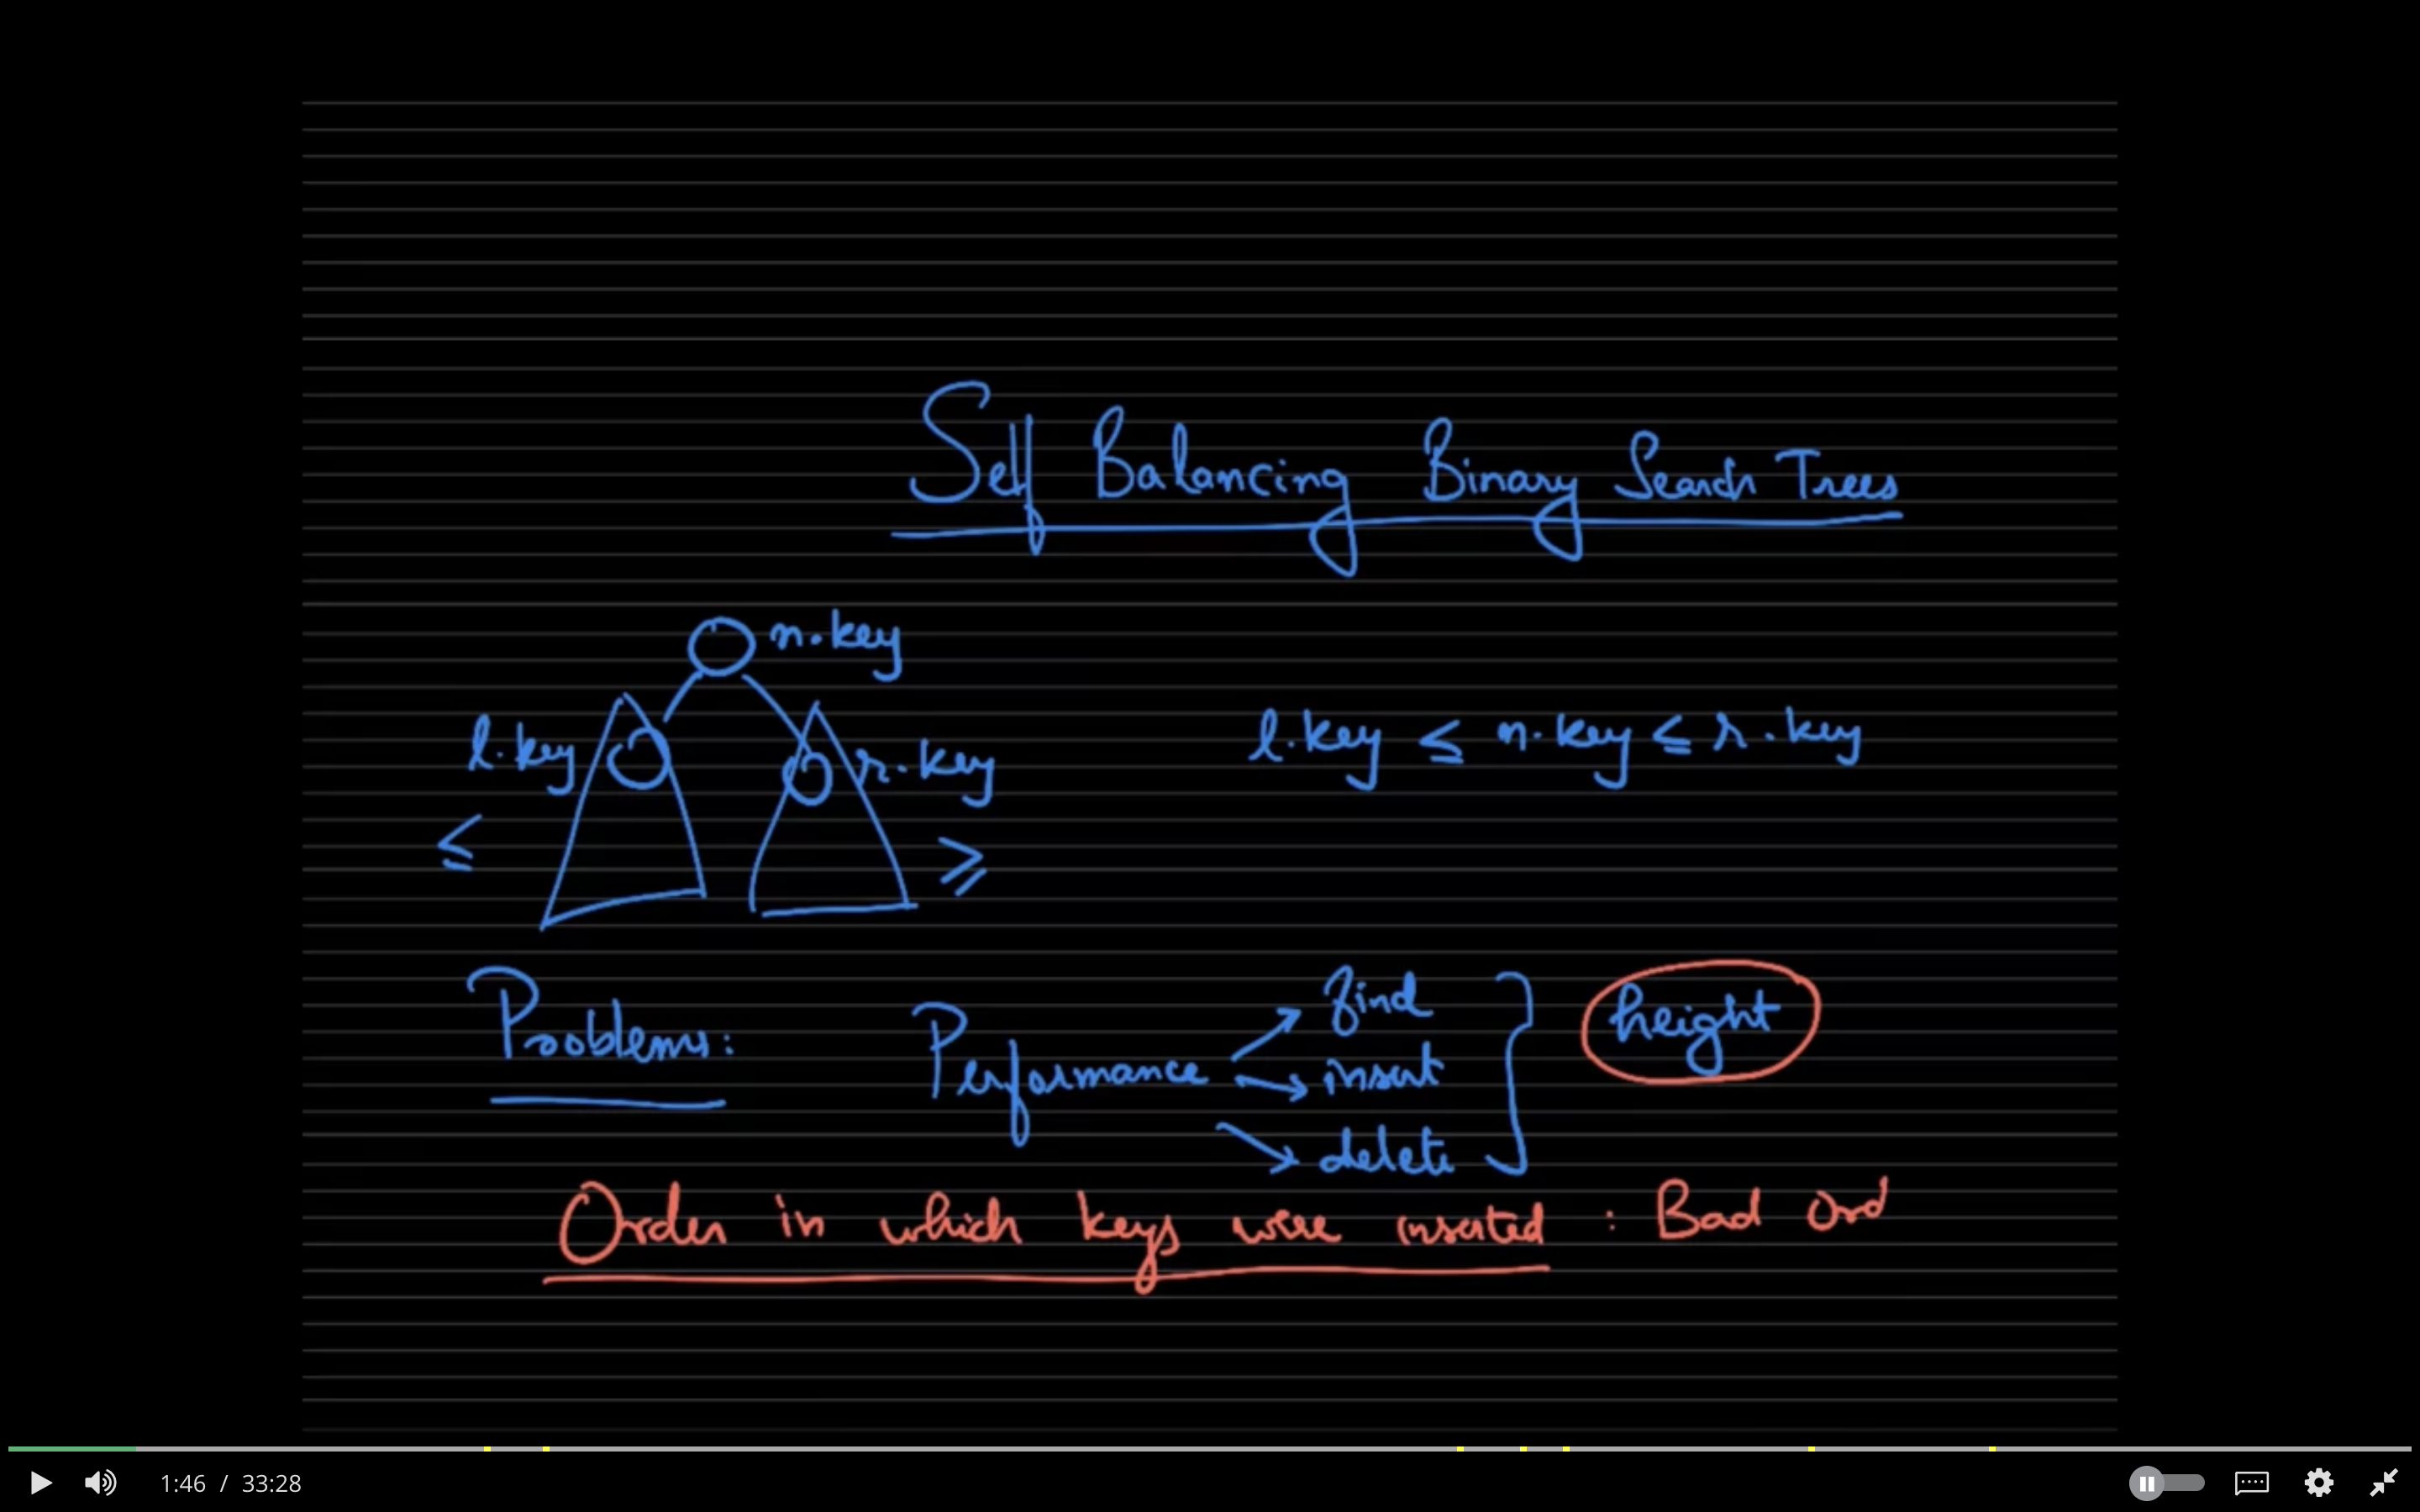 Self Balancing Binary Search Trees
n.key
l.key
r.key
l.key ≤ n.key ≤ r.key
≤
≥
Problems:
Performance
find
insert
delete
height
Order in which keys were inserted : Bad Ord
1:46 / 33:28